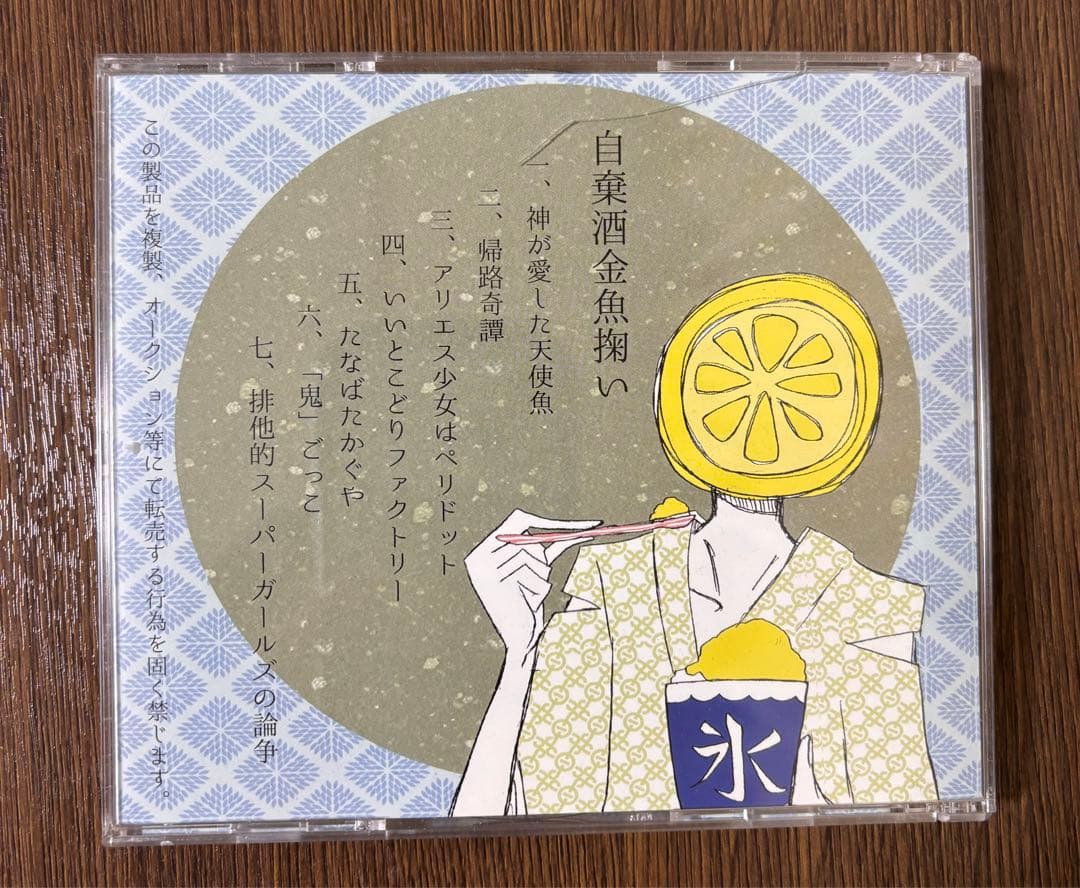 自棄酒金魚掬い
一、神が愛した天使魚
二、帰路奇譚
三、アリエス少女はペリドット
四、いいとこどりファクトリー
五、たなばたかぐや
六、「鬼」ごっこ
七、排他的スーパーガールズの論争
この製品を複製、オークション等にて転売する行為を固く禁じます。
氷